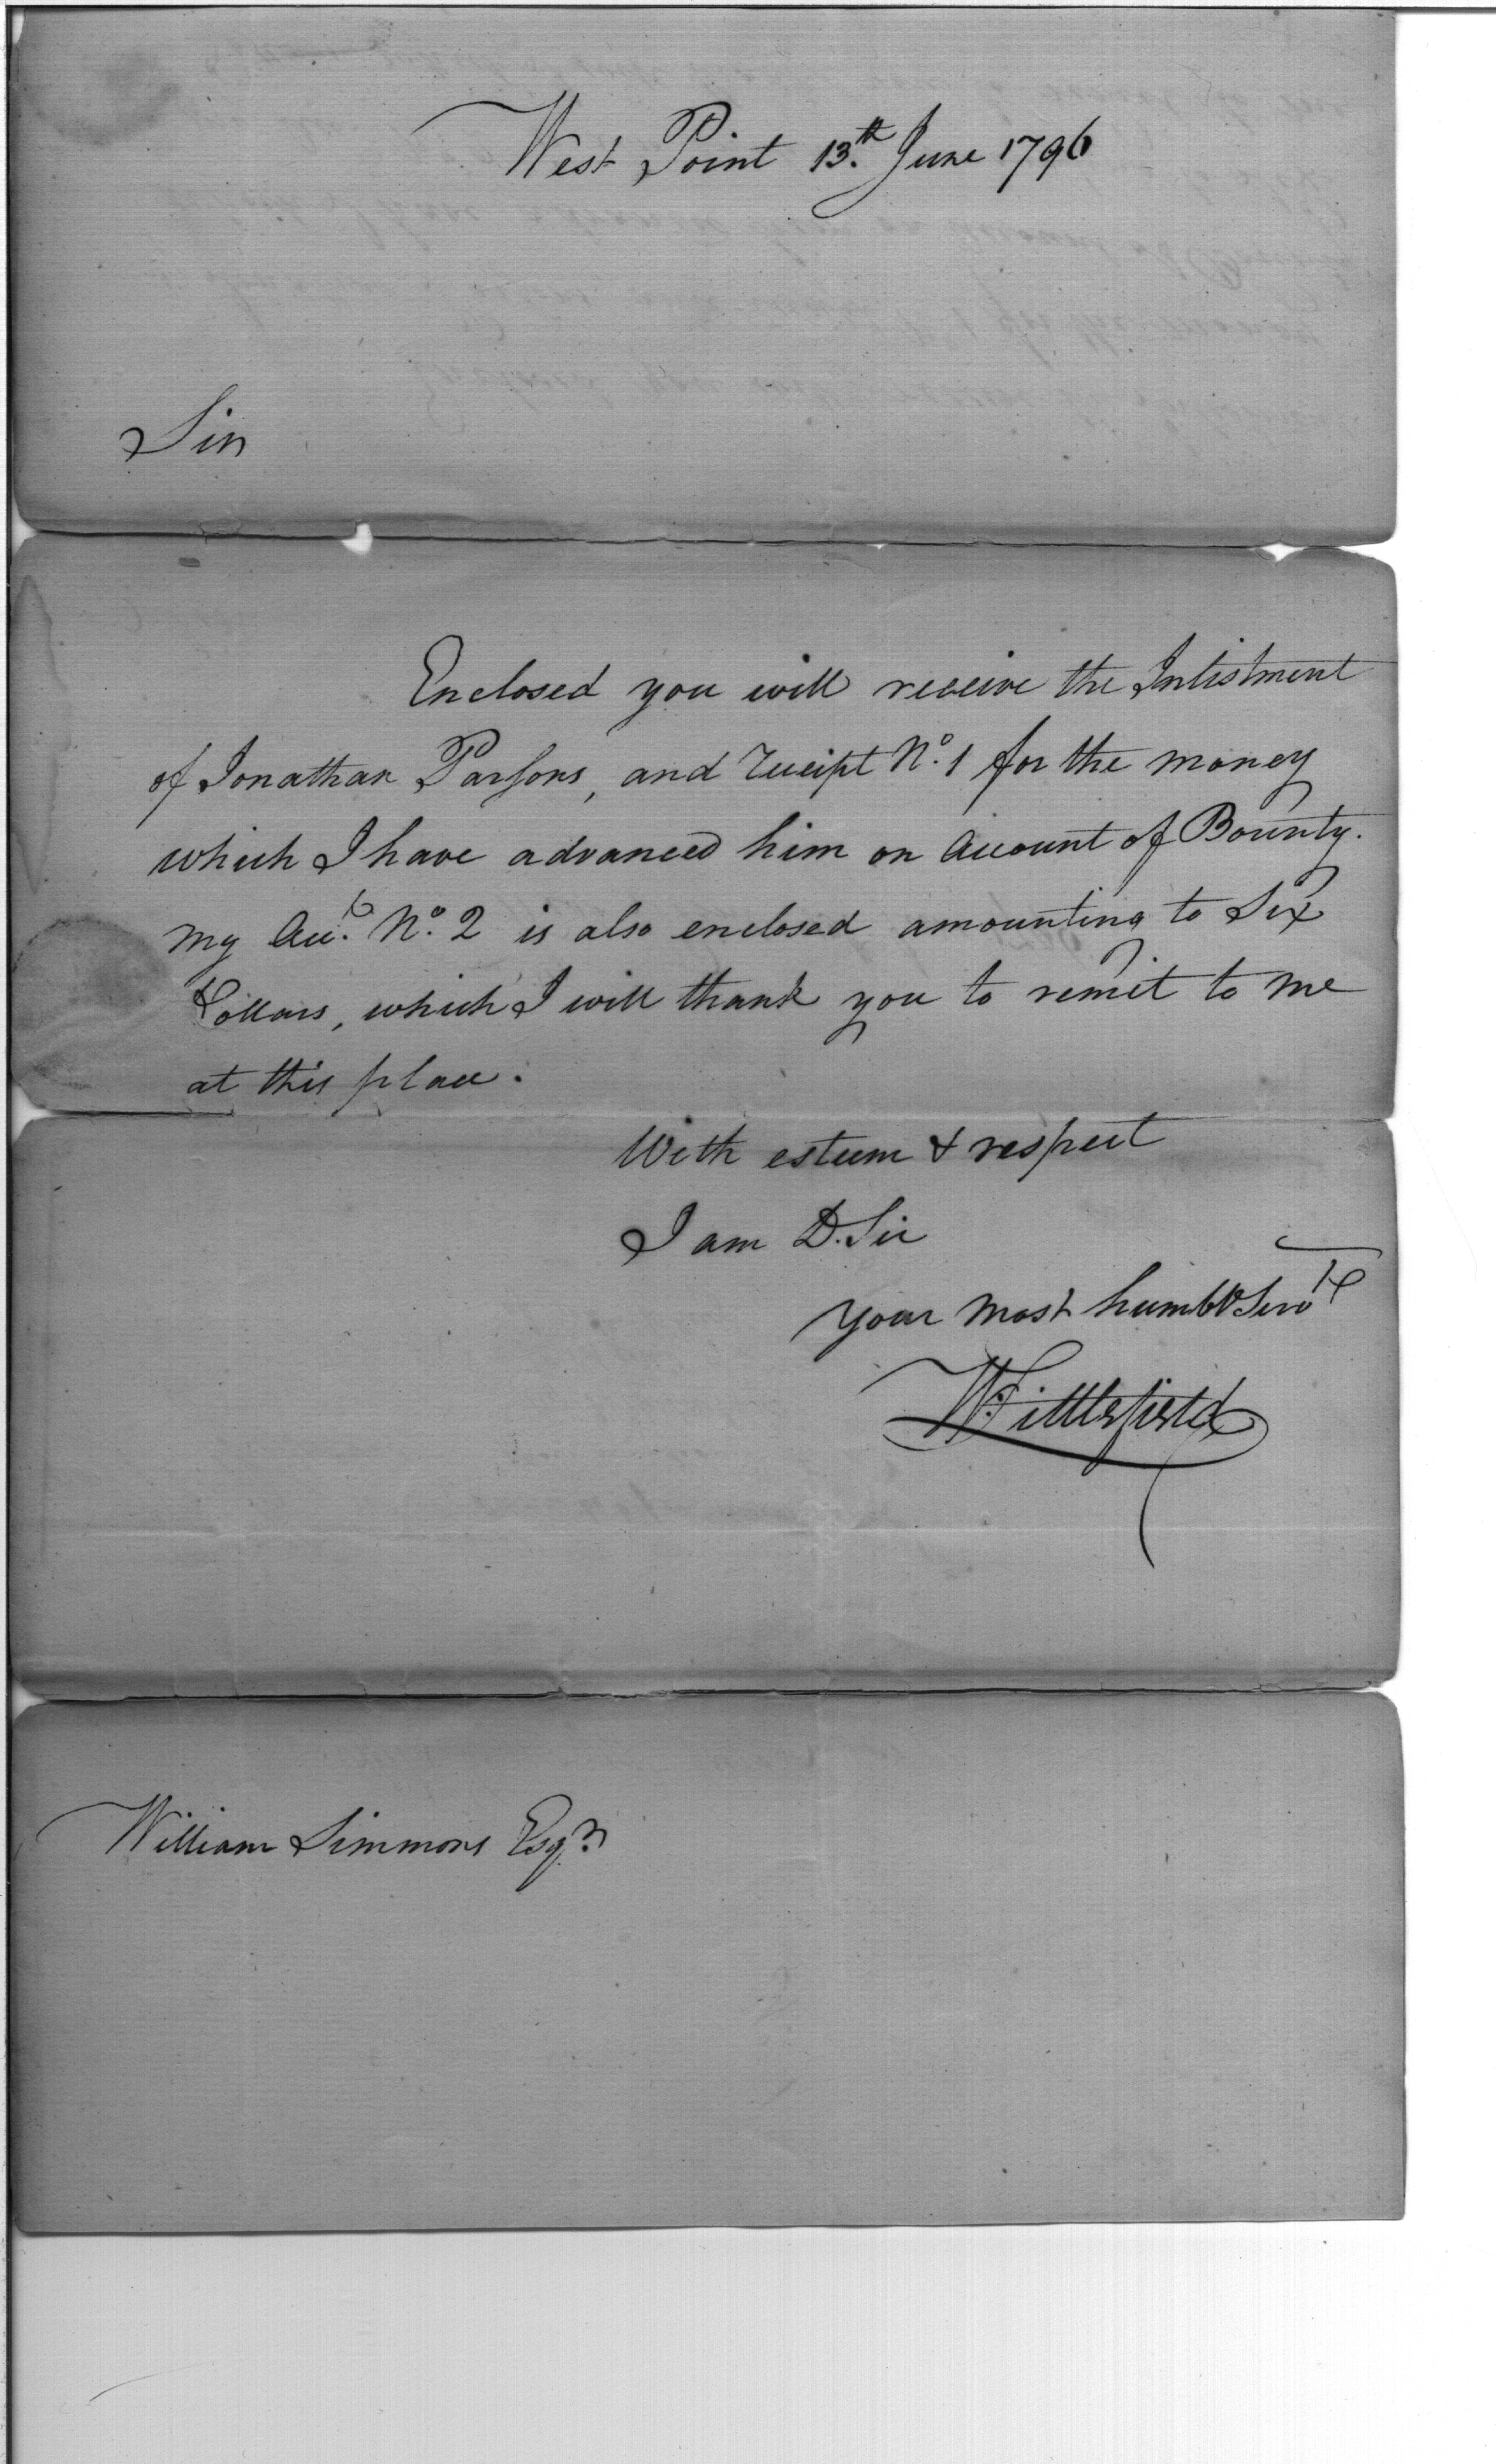 West Point 13.th June 1796
Sir
Enclosed you will receive the Inlistment
of Jonathan Parsons, and receipt No. 1 for the money
which I have advanced him on account of Bounty.
my Acct. No. 2 is also enclosed amounting to Six
Dollars, which I will thank you to remit to me
at this place.
With esteem & respect
I am D. Sir
your most humbl Servt
W. Littlefield
William Simmons Esqr.